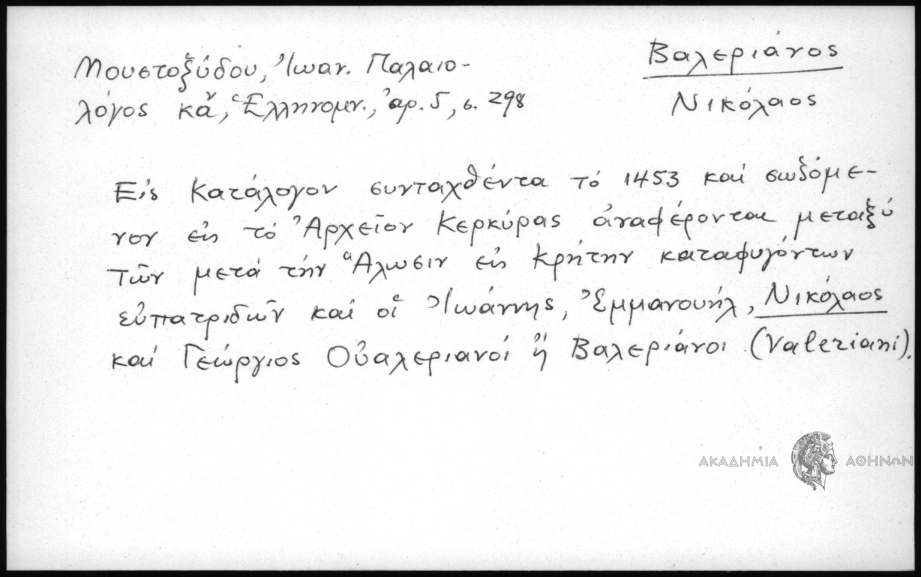 Βαλεριάνος
Νικόλαος
Μουστοξύδου, Ἰωαν. Παλαιο-
λόγος κἄ, Ἑλληνομν., ἀρ. 5, σ. 298
Εἰς κατάλογον συνταχθέντα τό 1453 καί σωζόμε-
νον εἰς τό Ἀρχεῖον Κερκύρας ἀναφέρονται μεταξύ
τῶν μετά τήν Ἅλωσιν εἰς Κρήτην καταφυγόντων
εὐπατριδῶν καί οἱ Ἰωάννης, Ἐμμανουήλ, Νικόλαος
καί Γεώργιος Οὐαλεριανοί ἤ Βαλεριάνοι (Valeriani).
ΑΚΑΔΗΜΙΑ ΑΘΗΝΩΝ